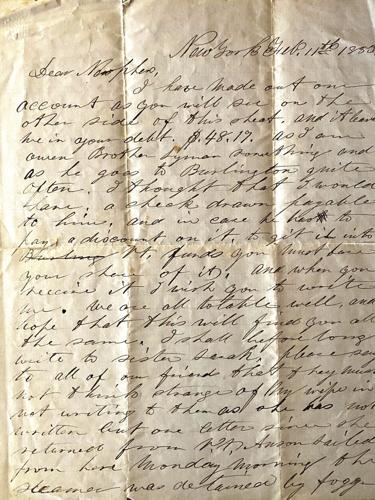 New York Feb. 11th 185
Dear Newphew,
I have made out our
account as you will see on the
other side of this sheat, and it leave
me in your debt, $.48.17. as I am
owen Brother Lyman something and
as he goes to Burlington quite
often. I thought that I would
have, a check drawn payable
to him, and in case he has to
pay a discount on it, to git it into
Vt, funds you must bare
your share of it, and when you
receive it I wish you to write
me. We are all tolable well, and
hope that this will find you all
the same. I shall before long
write to sister Sarah, please say
to all of our friend that they must
not think strange of my wife in
not writing to them as she has not
written but one letter since she
returned from Anson Sailed
from here Monday Morning the
steamer was detained by fogg